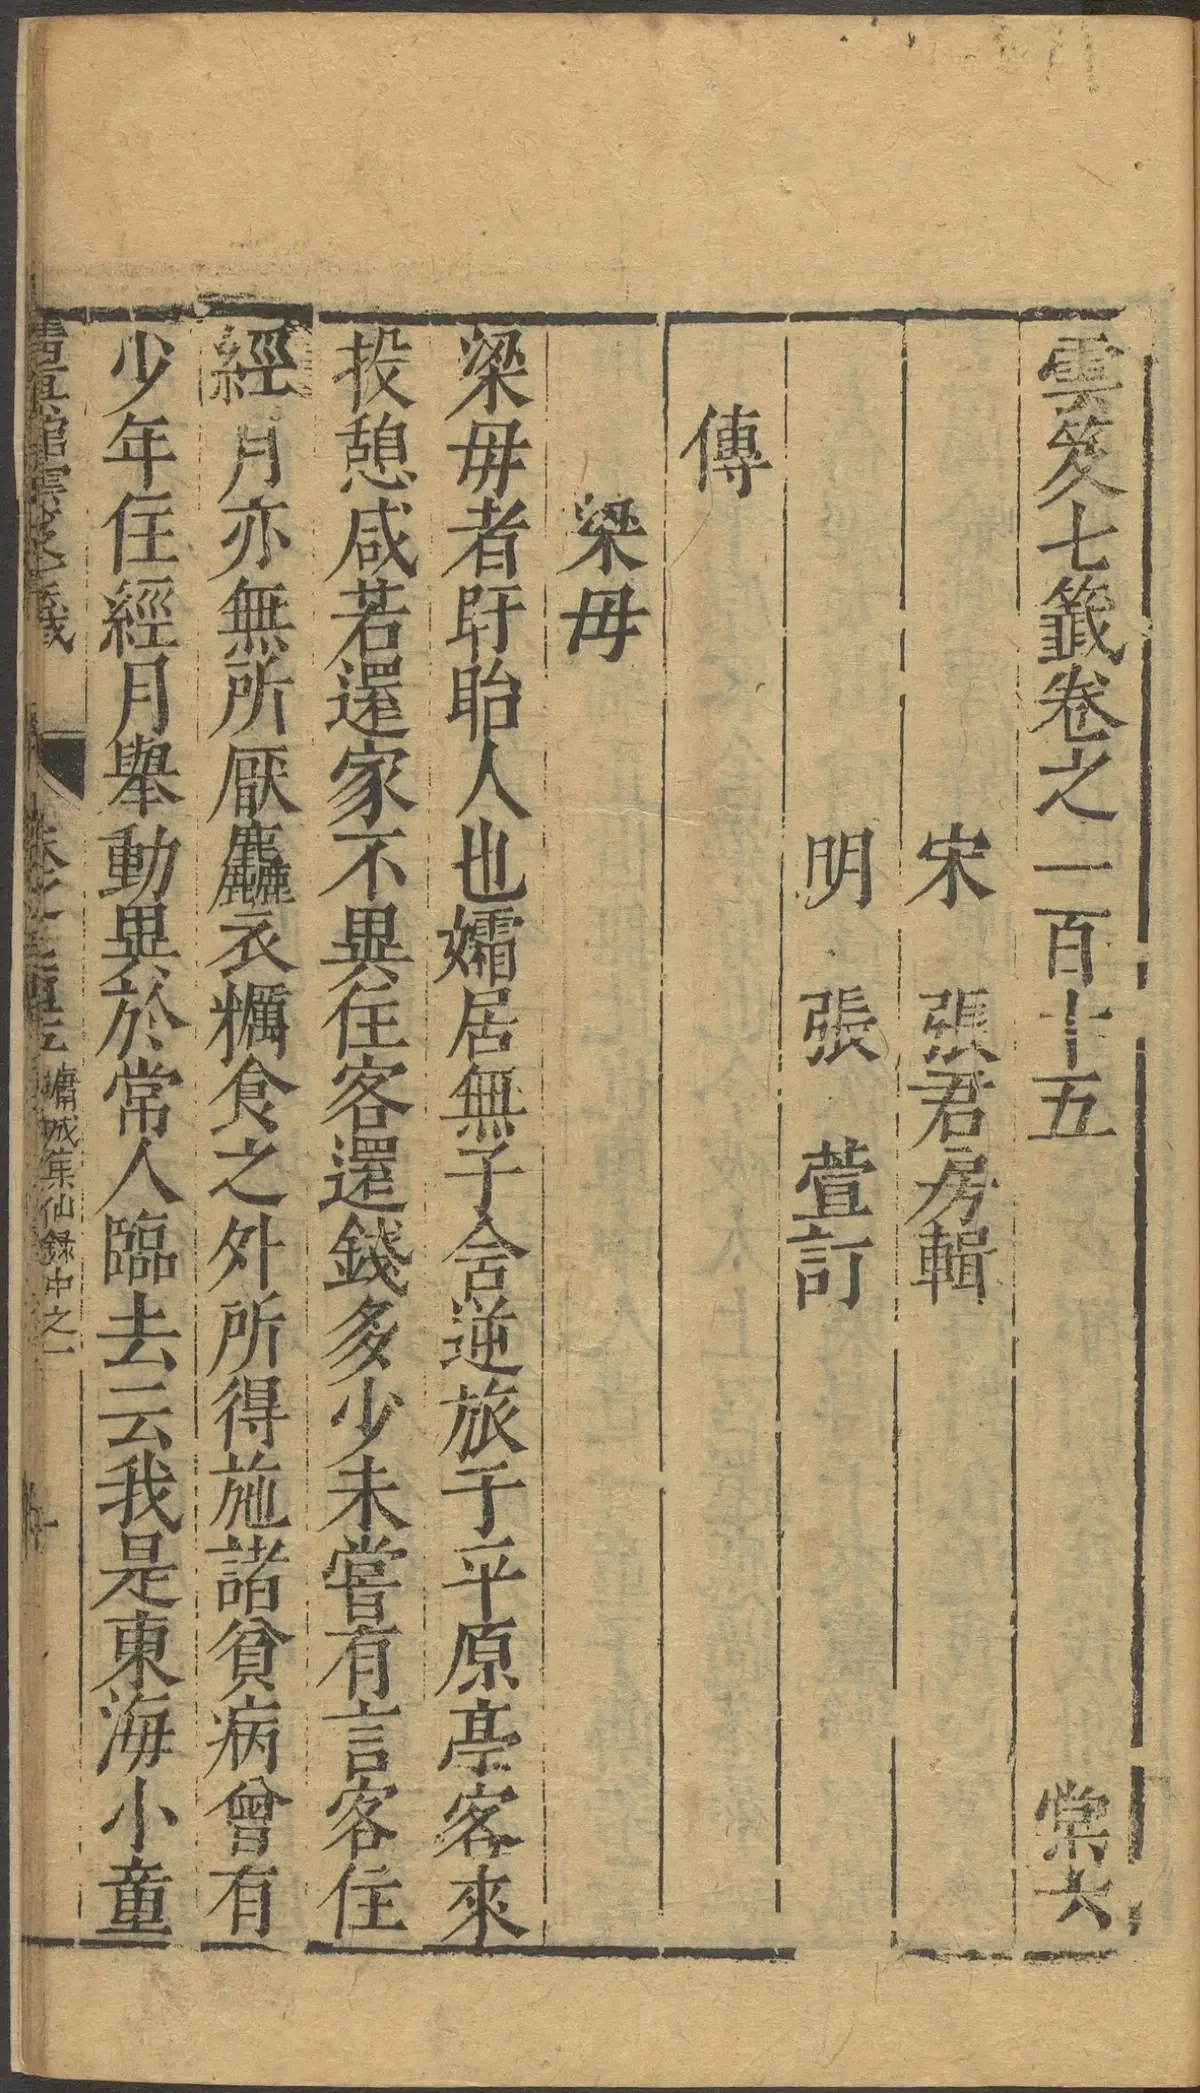 雲笈七籤卷之一百十五 棠六
宋 張君房輯
明 張 萱訂
傳
梁毋
梁毋者盱眙人也孀居無子舍逆旅于平原亭客來
投憩咸若還家不異住客還錢多少未嘗有言客住
經月亦無所厭麤衣糲食之外所得施諸貧病曾有
少年住經月舉動異於常人臨去云我是東海小童
清真館雲笈七籤 卷之一百十五 墉城集仙錄中之一